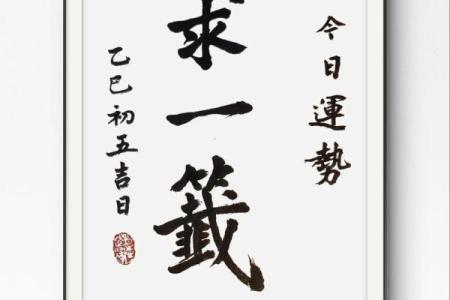 今日運勢
求一籤
乙巳初五吉日